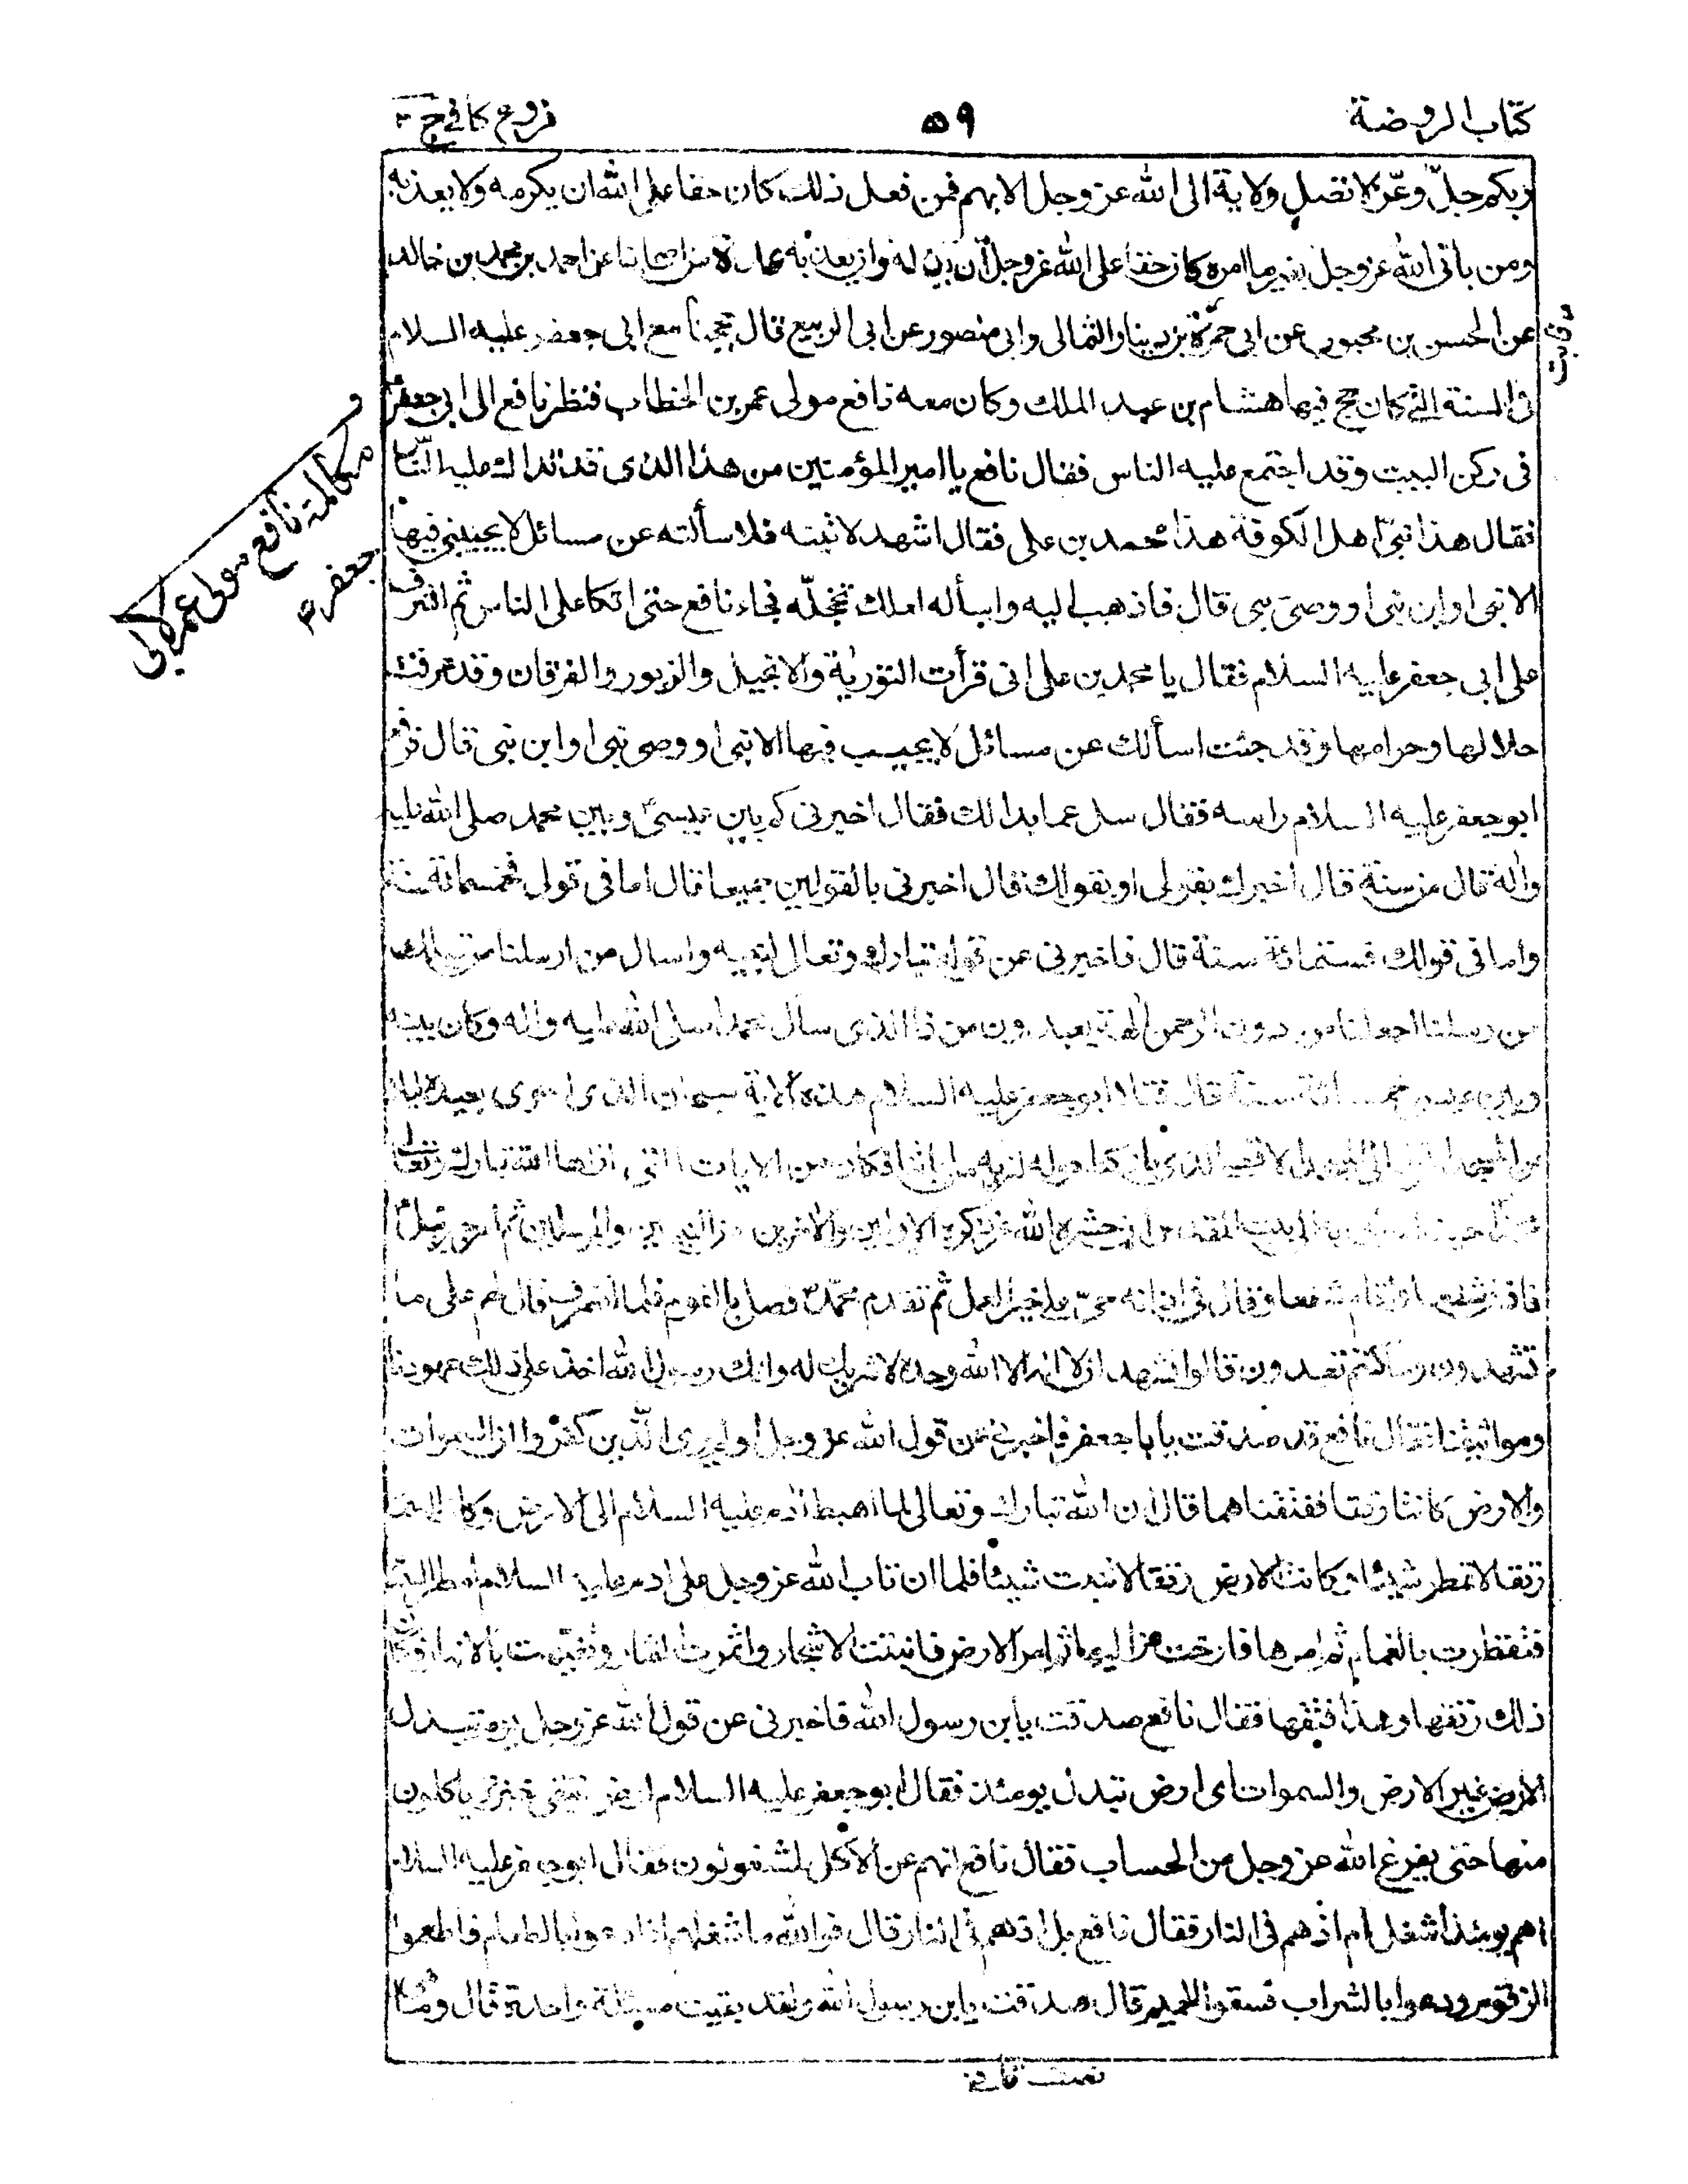 كتاب الروضة
٥٩
فروع كافي ج ٣
ربكم جلّ وعزّ لا تصل ولاية الى الله عز وجل الا بهم فمن فعل ذلك كان حقا على الله ان يكرمه ولا يعذبه
ومن ياتى الله عز وجل بغير ما امره كان حقا على الله عز وجل ان يذله وان يعذبه عدة من اصحابنا عن احمد بن محمد بن خالد
عن الحسن بن محبوب عن ابى حمزة بن دينار الثمالى وابى منصور عن ابى الربيع قال حججنا مع ابى جعفر عليه السلام
فى السنة التى كان حج فيها هشام بن عبد الملك وكان معه نافع مولى عمر بن الخطاب فنظر نافع الى ابى جعفرؑ
فى ركن البيت وقد اجتمع عليه الناس فقال نافع يا امير المؤمنين من هذا الذى قد تداك عليه الناس
فقال هذا نبىّ اهل الكوفة هذا محمد بن على فقال اشهد لاتينه فلاسألنه عن مسائل لا يجيبنى فيها
الا نبى او ابن نبى او وصى نبى قال فاذهب اليه واسأله لعلك تخجله فجاء نافع حتى اتكا على الناس ثم اشرف
على ابى جعفر عليه السلام فقال يا محمد بن على انى قرأت التورية والانجيل والزبور والفرقان وقد عرفت
حلالها وحرامها وقد جئت اسألك عن مسائل لا يجيب فيها الا نبى او وصى نبى او ابن نبى قال فرفع
ابو جعفر عليه السلام راسه فقال سل عما بدا لك فقال اخبرنى كم بين عيسىؑ وبين محمد صلى الله عليه
واله قال من سنة قال اخبرك بقولى او بقولك قال اخبرنى بالقولين جميعا قال اما فى قولى فخمسمائة سنة
واما فى قولك فستمائة سنة قال فاخبرنى عن قول الله تبارك وتعالى لنبيه واسال من ارسلنا من قبلك
من رسلنا اجعلنا من دون الرحمن الهة يعبدون من ذا الذى سأل محمد صلى الله عليه واله وكان بينه
وبين عيسى خمسمائة سنة قال فتلا ابو جعفر عليه السلام هذه الاية سبحان الذى اسرى بعبده ليلا
من المسجد الحرام الى المسجد الاقصى الذى باركنا حوله لنريه من اياتنا فكان من الايات التى اراها الله تبارك وتعالى
محمدا حيث اسرى به الى بيت المقدس ان حشر الله عز ذكره الاولين والاخرين من النبيين والمرسلين ثم امر جبرئيلؑ
فاذن شفعا واقام شفعا وقال فى اذانه حىّ على خير العمل ثم تقدم محمدؐ فصلى بالقوم فلما انصرف قال لهم على ما
تشهدون وما كنتم تعبدون قالوا نشهد ان لا اله الا الله وحده لا شريك له وانك رسول الله اخذ على ذلك عهودنا
ومواثيقنا فقال نافع قد صدقت يا با جعفر فاخبرنى عن قول الله عز وجل اولم ير الذين كفروا ان السموات
والارض كانتا رتقا ففتقناهما قال ان الله تبارك وتعالى لما اهبط ادم عليه السلام الى الارض وكانت السماء
رتقا لا تمطر شيئا وكانت الارض رتقا لا تنبت شيئا فلما ان تاب الله عز وجل على ادم عليه السلام امر السماء
فتفطرت بالغمام ثم امرها فارخت عزاليها ثم امر الارض فانبتت الاشجار واثمرت الثمار وتفيهت بالانهار فكان
ذلك رتقها وهذا فتقها فقال نافع صدقت يابن رسول الله فاخبرنى عن قول الله عز وجل يوم تبدل
الارض غير الارض والسموات اى ارض تبدل يومئذ فقال ابو جعفر عليه السلام ارض تبقى خبزة ياكلون
منها حتى يفرغ الله عز وجل من الحساب فقال نافع انهم عن الاكل لمشغولون فقال ابو جعفر عليه السلام
اهم يومئذ اشغل ام اذ هم فى النار فقال نافع بل اذ هم فى النار قال فوالله ما شغلهم اذ دعوا بالطعام فاطعموا
الزقوم ودعوا بالشراب فسقوا الحميم قال صدقت يابن رسول الله ولقد بقيت مسئلة واحدة قال وما
مكالمة نافع مولى عمر لابى
جعفرؑ
ثابت